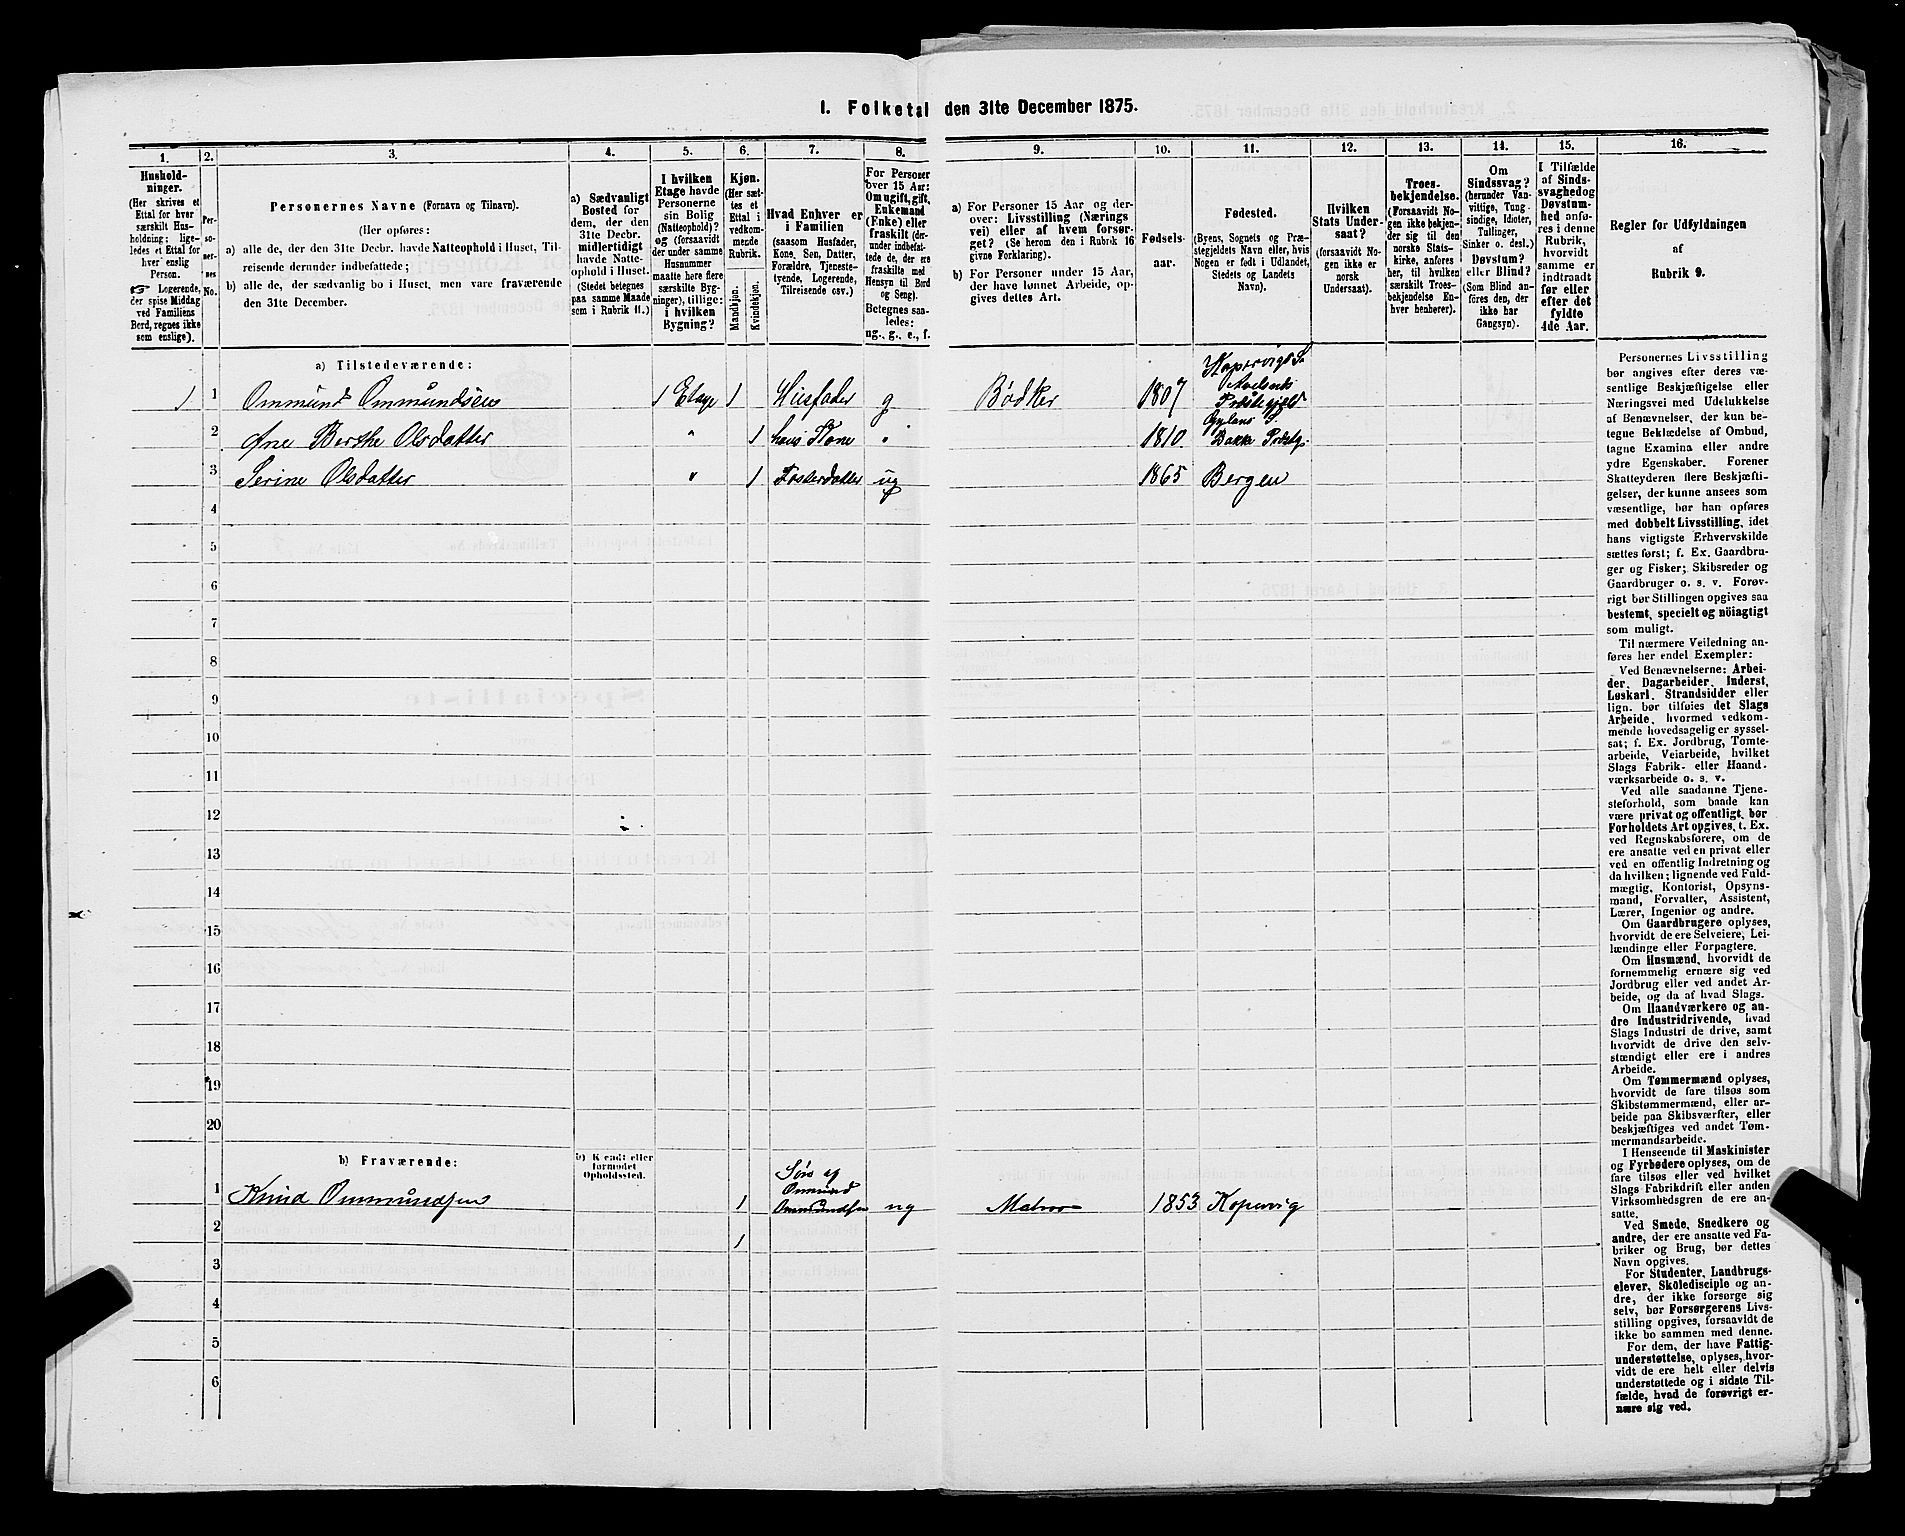 1. Folketal den 31te December 1875.
1.
2.
3.
4.
5.
6.
7.
8.
9.
10.
11.
12.
13.
14.
15.
16.
Hushold-
ninger.
(Her skrives et
Ettal for hver
særskilt Hus-
holdning; lige-
ledes et Ettal for
hver enslig
Person.
Logerende,
der spise Middag
ved Familiens
Bord, regnes ikke
som enslige).
Per-
so-
ner-
nes
No.
Personernes Navne (Fornavn og Tilnavn).
(Her opføres:
a) alle de, der den 31te Decbr. havde Natteophold i Huset, Til-
reisende derunder indbefattede;
b) alle de, der sædvanlig bo i Huset, men vare fraværende
den 31te December.
a) Sædvanligt
Bosted for
dem, der den
31te Decbr.
midlertidigt
havde Natte-
ophold i Huset.
(Stedet betegnes
paa samme Maade
som i Rubrik 11.)
I hvilken
Etage havde
Personerne
sin Bolig
(Natteophold)?
og (forsaavidt
der under samme
Husnummer
maatte høre flere
særskilte Byg-
ninger), tillige:
i hvilken
Bygning?
Kjøn.
(Her sæt-
tes et
Ettal i
vedkom-
mende
Rubrik.
Mandkjøn.
Kvindekjøn.
Hvad Enhver er
i Familien
(saasom Husfader,
Kone, Søn, Datter,
Forældre, Tjeneste-
tyende, Logerende,
Tilreisende osv.)
For Personer
over 15 Aar:
Om ugift, gift,
Enkemand
(Enke) eller
fraskilt (der-
under indbefat-
tede de, der ere
fraskilte med
Hensyn til Bord
og Seng).
Betegnes saa-
ledes:
ug., g., e., f.
a) For Personer 15 Aar og der-
over: Livsstilling (Nærings
vei) eller af hvem forsør-
get? (Se herom den i Rubrik 16
givne Forklaring).
b) For Personer under 15 Aar,
der have lønnet Arbeide, op-
gives dettes Art.
Fødsels-
aar.
Fødested.
(Byens, Sognets og Præ-
stegjeldets Navn eller, hvis
Nogen er født i Udlandet,
Stedets og Landets
Navn).
Hvilken
Stats Under-
saat?
(forsaavidt No-
gen ikke er
norsk
Undersaat).
Troes-
bekjendelse.
(Forsaavidt No-
gen ikke bekjen-
der sig til den
norske Stats-
kirke, anføres
her, til hvilken
særskilt Troes-
bekjendelse En-
hver henhører).
Om
Sindssvag?
(herunder Van-
vittige, Tung-
sindige, Idioter,
Tullinger,
Sinker o. desl.).
Døvstum?
eller Blind?
(Som Blind an-
føres den, der
ikke har
Gangsyn).
I Tilfælde
af Sinds-
svaghed og
Døvstum-
hed anfø-
res i denne
Rubrik,
hvorvidt
samme er
indtraadt
før eller
efter det
fyldte
4de Aar.
Regler for Udfyldningen
af
Rubrik 9.
a) Tilstedeværende:
1 1 Ommund Ommundsen 1 Etage 1 Husfader g Bødker 1807 Kopervigs S. Præstegjeld
2 Ane Berthe Olsdatter " 1 hans Kone " 1810. Bakke Præstgj.
3 Serine Olsdatter " 1 Fosterdatter ug 1865 Bergen
4
5
6
7
8
9
10
11
12
13
14
15
16
17
18
19
20
b) Fraværende:
b) Kjendt eller
formodet
Opholdssted.
1 Knud Ommundsen 1 Søn af Ommund Ommundsen ug Matros 1853 Kopervig
2
1
3
4
5
6
Personernes Livsstilling
bør angives efter deres væ-
sentlige Beskjæftigelse eller
Næringsvei med Udelukkelse
af Benævnelser, der kun be-
tegne Beklædelse af Ombud,
tagne Examina eller andre
ydre Egenskaber. Forener
Skatteyderen flere Beskjæfti-
gelser, der kunne ansees som
væsentlige, bør han opføres
med dobbelt Livsstilling, idet
hans vigtigste Erhvervskilde
sættes først; f. Ex. Gaardbru-
ger og Fisker; Skibsreder og
Gaardbruger o. s. v. Forøv-
rigt bør Stillingen opgives saa
bestemt, specielt og nöiagtigt
som muligt.
Til nærmere Veiledning an-
føres her endel Exempler:
Ved Benævnelserne: Arbei-
der, Dagarbeider, Inderst,
Løskarl, Strandsidder eller
lign. bør tilføies det Slags
Arbeide, hvormed vedkom-
mende hovedsagelig er syssel-
sat; f. Ex. Jordbrug, Tomte-
arbeide, Veiarbeide, hvilket
Slags Fabrik- eller Haand-
værksarbeide o. s. v.
Ved alle saadanne Tjene-
steforhold, som baade kan
være privat og offentligt, bør
Forholdets Art opgives, t. Ex.
ved Regnskabsførere, om de
ere ansatte ved en privat eller
ved en offentlig Indretning og
da hvilken; lignende ved Fuld-
mægtig, Kontorist, Opsyns-
mand, Forvalter, Assistent,
Lærer, Ingeniør og andre.
Om Gaardbrugere oplyses,
hvorvidt de ere Selveiere, Lei-
lændinge eller Forpagtere.
Om Husmænd, hvorvidt de
fornemmelig ernære sig ved
Jordbrug eller ved andet Ar-
beide, og da af hvad Slags.
Om Haandværkere og an-
dre Industridrivende, hvad
Slags Industri de drive, samt
hvorvidt de drive den selv-
stændigt eller ere i andres
Arbeide.
Om Tømmermænd oplyses,
hvorvidt de fare tilsøs som
Skibstømmermænd, eller ar-
beide paa Skibsværfter, eller
beskjæftiges ved andet Tøm-
mermandsarbeide.
I Henseende til Maskinister
og Fyrbødere oplyses, om de
fare tilsøs eller ved hvilket
Slags Fabrikdrift eller anden
Virksomhedsgren de ere an-
satte.
Ved Smede, Snedkere og
andre, der ere ansatte ved Fa-
briker og Brug, bør dettes
Navn opgives.
For Studenter, Landbrugs-
elever, Skoledisciple og an-
dre, der ikke forsørge sig
selv, bør Forsørgerens Livs-
stilling opgives, forsaavidt de
ikke bo sammen med denne.
For dem, der have Fattig-
understøttelse, oplyses, hvor-
vidt de ere helt eller delvis
understøttede og i sidste Til-
fælde, hvad de forøvrigt er-
nære sig ved.